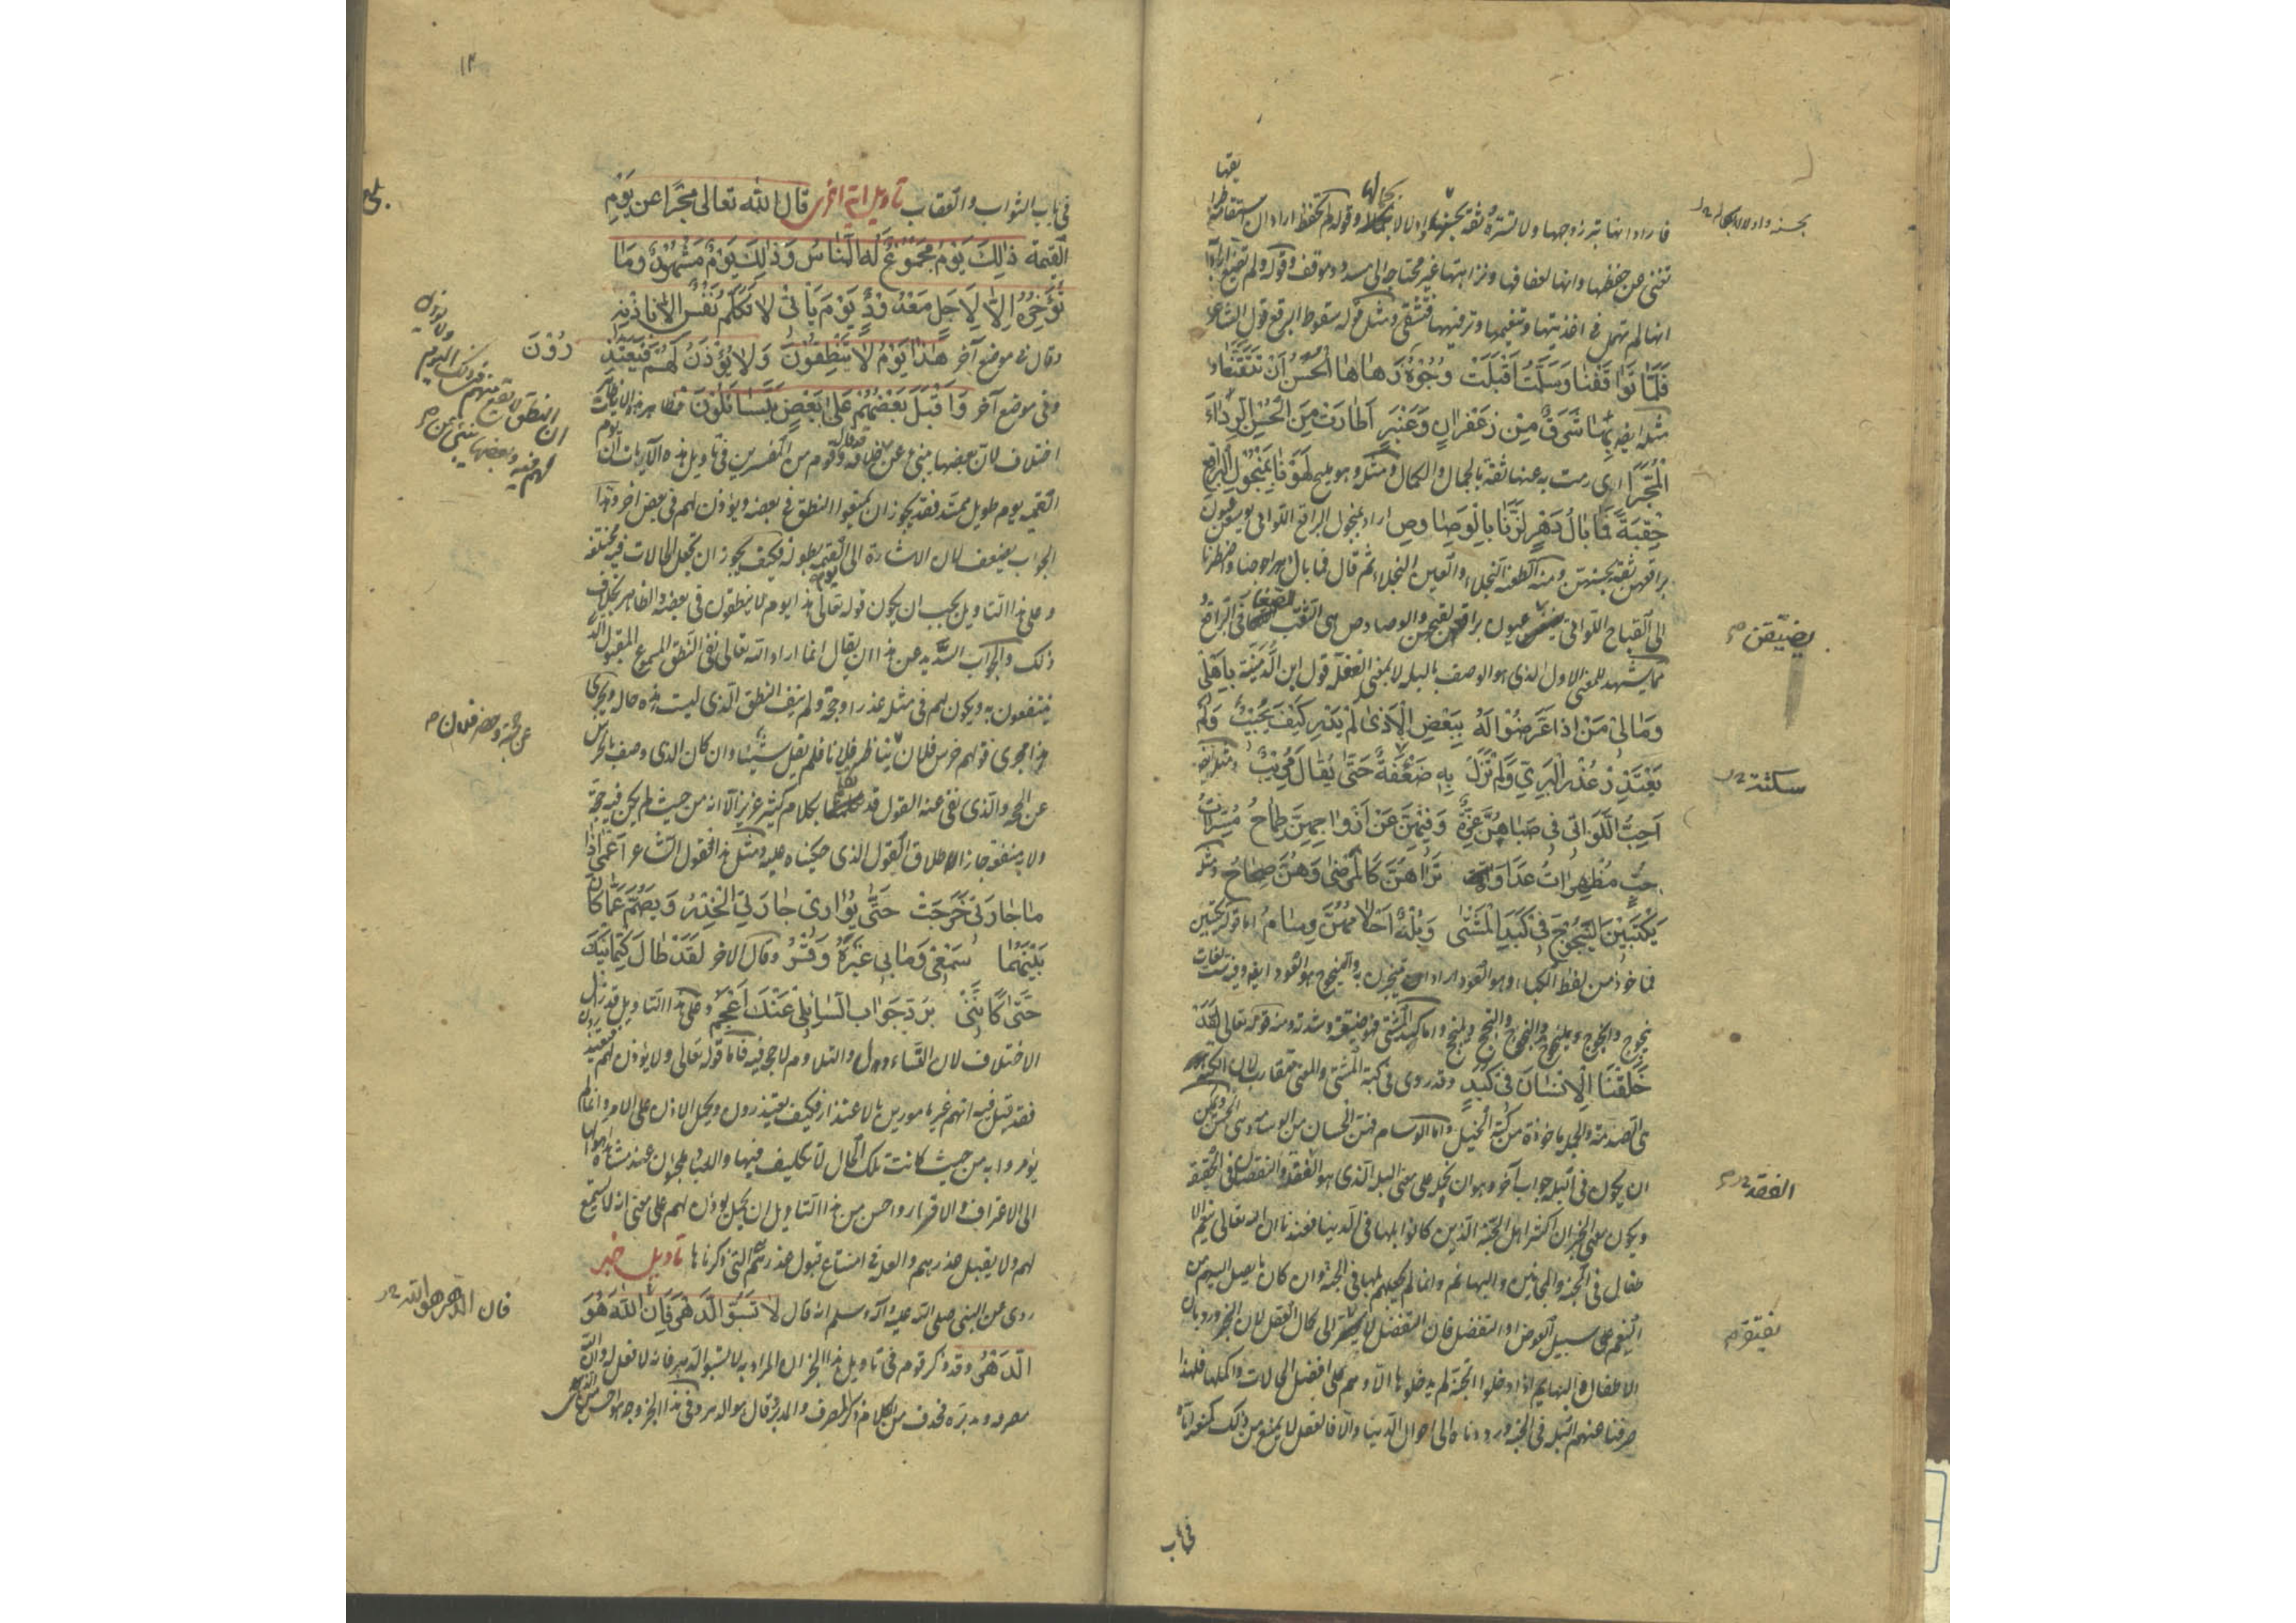 يقها
فاراد انها تبرز وجهها ولا تستره ثقة بحسنها وادلالا بجمالها وقوله لم تحفظ اراد ان استقامة طرا
تغني عن حفظها وانها لعفافها ونزاهتها غير محتاجة الى مسدد وموقف وقوله ولم تضيع اراد
انها لم تهمل في اغذيتها وتنعيمها وترفيهها فتشقى ومثل قوله سقوط البرقع قول الشاعر
فَلَمَّا تَوَاقَفْنَا وَسَلَّمْتُ اَقْبَلَتْ وُجُوْهٌ زَهَاهَا الْحُسْنُ اَنْ تَتَقَنَّعَا و
مثله ايضا بِهَا شَرَقٌ مِنْ زَعْفَرَانٍ وَعَنْبَرٍ اَطَارَتْ مِنَ الْحُسْنِ الرِّدَاءَ
الْمُحَبَّرَا اي رمت به عنها ثقة بالجمال والكمال ومثله وهو مليح لَهَوْنَا بِمَنْجُوْلِ الْبَرَاقِعِ
حِقْبَةً فَمَا بَالُ دَهْرٍ لَزَّنَا بِالْوَصَاوِصِ اراد بمنجول البراقع اللواتي يوسعن عيون
براقعهن ثقة بحسنهن ومنه الطعنة النجلاء والعين النجلاء ثم قال فما بال دهر احوجنا واضطرنا
الى القباح اللواتي يضيقن عيون براقعهن لقبحهن والوصاوص هي النقب الصغار في البراقع و
مما يشهد للمعنى الاول الذي هو الوصف بالبله لا بمعنى الغفلة قول ابن الدمينة بِاَهْلِيْ
وَمَالِيْ مَنْ اِذَا عَرَضُوْا لَهُ بِبَعْضِ الْاَذَى لَمْ يَدْرِ كَيْفَ يُجِيْبُ وَلَمْ
يَعْتَذِرْ عُذْرَ الْبَرِيِّ وَلَمْ تَزَلْ بِهِ ضَعْفَةٌ حَتَّى يُقَالَ مُرِيْبٌ ومثله ايضا
اُحِبُّ اللَّوَاتِيْ فِيْ صَبَاهُنَّ غِرَّةٌ وَفِيْهِنَّ عَنْ اَزْوَاجِهِنَّ طِمَاحُ مُسِرَّاتُ
حُبٍّ مُظْهِرَاتُ عَدَاوَةٍ تَرَاهُنَّ كَالْمَرْضَى وَهُنَّ صِحَاحُ ومثله
يَكْتَبِيْنَ الْيَنْجُوْجَ فِيْ كَبَدِ الْمَشْتَى وَبُلْهٌ اَحْلَامُهُنَّ وِسَامُ اما قوله يكتبين
فماخوذ من لفظ الكباء وهو العود اراد يتبخرن به والينجوج هو العود ايضا وفيه ست لغات
ينجوج وانجوج ويلنجوج والنجوج والنجج ويلنجج واما كبد المشتى فهو ضيقته وشدته ومنه قوله تعالى لَقَدْ
خَلَقْنَا الْاِنْسَانَ فِيْ كَبَدٍ وقد روى في كبة المشتى والمعنى متقارب لان الكبة
هي الصدمة والحملة ماخوذة من كبة الخيل واما الوسام فهن الحسان من الوسامة وهي الحسن ويمكن
ان يكون في البله جواب آخر وهو ان يحمل على معنى البله الذي هو الغفلة والنقصان في الحقيقة
ويكون معنى الخبر ان اكثر اهل الجنة الذين كانوا بلها في الدنيا فعندنا ان الله تعالى ينعم الا
طفال في الجنة والمجانين والبهائم وانما لم يجعلهم بلها في الجنة وان كان ما يصل اليهم من
النعيم على سبيل العوض او التفضل فان التفضل لا يفتقر الى كمال العقل لان الخبر ورد بان
الاطفال والبهايم اذا دخلوا الجنة لم يدخلوها الا وهم على افضل الحالات واكملها فلهذا
صرفنا عنهم البله في الجنة ورددناه الى احوال الدنيا والا فالعقل لا يمنع من ذلك كمنعه اياه
في باب
بحسنه وادلالا بجماله
يضيّقن
سكتة
الفقد
يفتقر
١٣
في باب الثواب والعقاب تاويل اية اخرى قال الله تعالى مخبرا عن يَوْمِ
الْقِيٰمَةِ ذٰلِكَ يَوْمٌ مَجْمُوْعٌ لَهُ النَّاسُ وَذٰلِكَ يَوْمٌ مَشْهُوْدٌ وَمَا
نُؤَخِّرُهٗ اِلَّا لِاَجَلٍ مَعْدُوْدٍ يَوْمَ يَاْتِيْ لَا تَكَلَّمُ نَفْسٌ اِلَّا بِاِذْنِهٖ
وقال في موضع آخر هٰذَا يَوْمُ لَا يَنْطِقُوْنَ وَلَا يُؤْذَنُ لَهُمْ فَيَعْتَذِ
رُوْنَ
وفي موضع آخر وَاَقْبَلَ بَعْضُهُمْ عَلٰى بَعْضٍ يَتَسَاءَلُوْنَ فظاهر هذه الايات
اختلاف لان بعضها ينبئ عن خلافه وقد قال قوم من المفسرين في تاويل هذه الآيات ان يوم
القيمة يوم طويل ممتد فقد يجوز ان يمنعوا النطق في بعضه ويؤذن لهم في بعض آخر وهذا
الجواب يضعف لان الاشارة الى يوم القيمة بطوله فكيف يجوز ان تجعل الحالات فيه مختلفة
وعلى هذا التاويل يجب ان يكون قوله تعالى هذا يوم لا ينطقون في بعضه والظاهر بخلاف
ذلك والجواب السديد عن هذا ان يقال انما اراد الله تعالى نفي النطق المسموع المقبول الذي
ينتفعون به ويكون لهم في مثله عذر او حجة ولم ينف النطق الذي ليست هذه حاله ويجري
هذا مجرى قولهم خرس فلان يناظر فلانا فلم يقل شيئا وان كان الذي وصف بالخرس
عن الحجة والذي نفى عنه القول قد تكلم بكلام كثير غزير الا انه من حيث لم يكن فيه حجة
ولا به منفعة جاز اطلاق القول الذي حكيناه عليه ومثل هذا قول الشاعر اَعْمَى اِذَا
مَا جَارَتِيْ خَرَجَتْ حَتَّى يُوَارِيَ جَارَتِي الْخِدْرُ وَيَصُمُّ عَمَّا كَانَ
بَيْنَهُمَا سَمْعِيْ وَمَا بِيْ غَيْرَهُ وَقْرُ وقال الآخر لَقَدْ طَالَ كِتْمَانِيْكَ
حَتَّى كَاَنَّنِيْ بِرَدِّ جَوَابِ السَّائِلِيْ عَنْكَ اَعْجَمُ وعلى هذا التاويل قد زال
الاختلاف لان التساءل والتلاوم لا حجة فيه فاما قوله تعالى ولا يؤذن لهم فيعتذرون
فقد قيل فيه انهم غير مامورين بالاعتذار فكيف يعتذرون ويحمل الاذن على الامر وانما لم
يؤمروا به من حيث كانت تلك الحال لا تكليف فيها والعباد ملجؤن عند مشاهدة اهوالها
الى الاعتراف والاقرار واحسن من هذا التاويل ان يحمل يؤذن لهم على معنى انه لا يستمع
لهم ولا يقبل عذرهم والعلة في امتناع قبول عذرهم هي التي ذكرناها تاويل خبر
روى عن النبي صلى الله عليه وآله وسلم انه قال لَا تَسُبُّوا الدَّهْرَ فَاِنَّ اللّٰهَ هُوَ
الدَّهْرُ وقد ذكر قوم في تاويل هذا الخبر ان المراد به لا تسبوا الدهر فانه لا فعل له وان الله
مصرفه ومدبره فحذف من الكلام ذكر المصرف والمدبر وقال هو الدهر وفي هذا الخبر وجه هو احسن من ذلك
ان النطق لا يقع منهم في ذلك اليوم
عن حجة وحضر فلان
فان الدهر هو الله